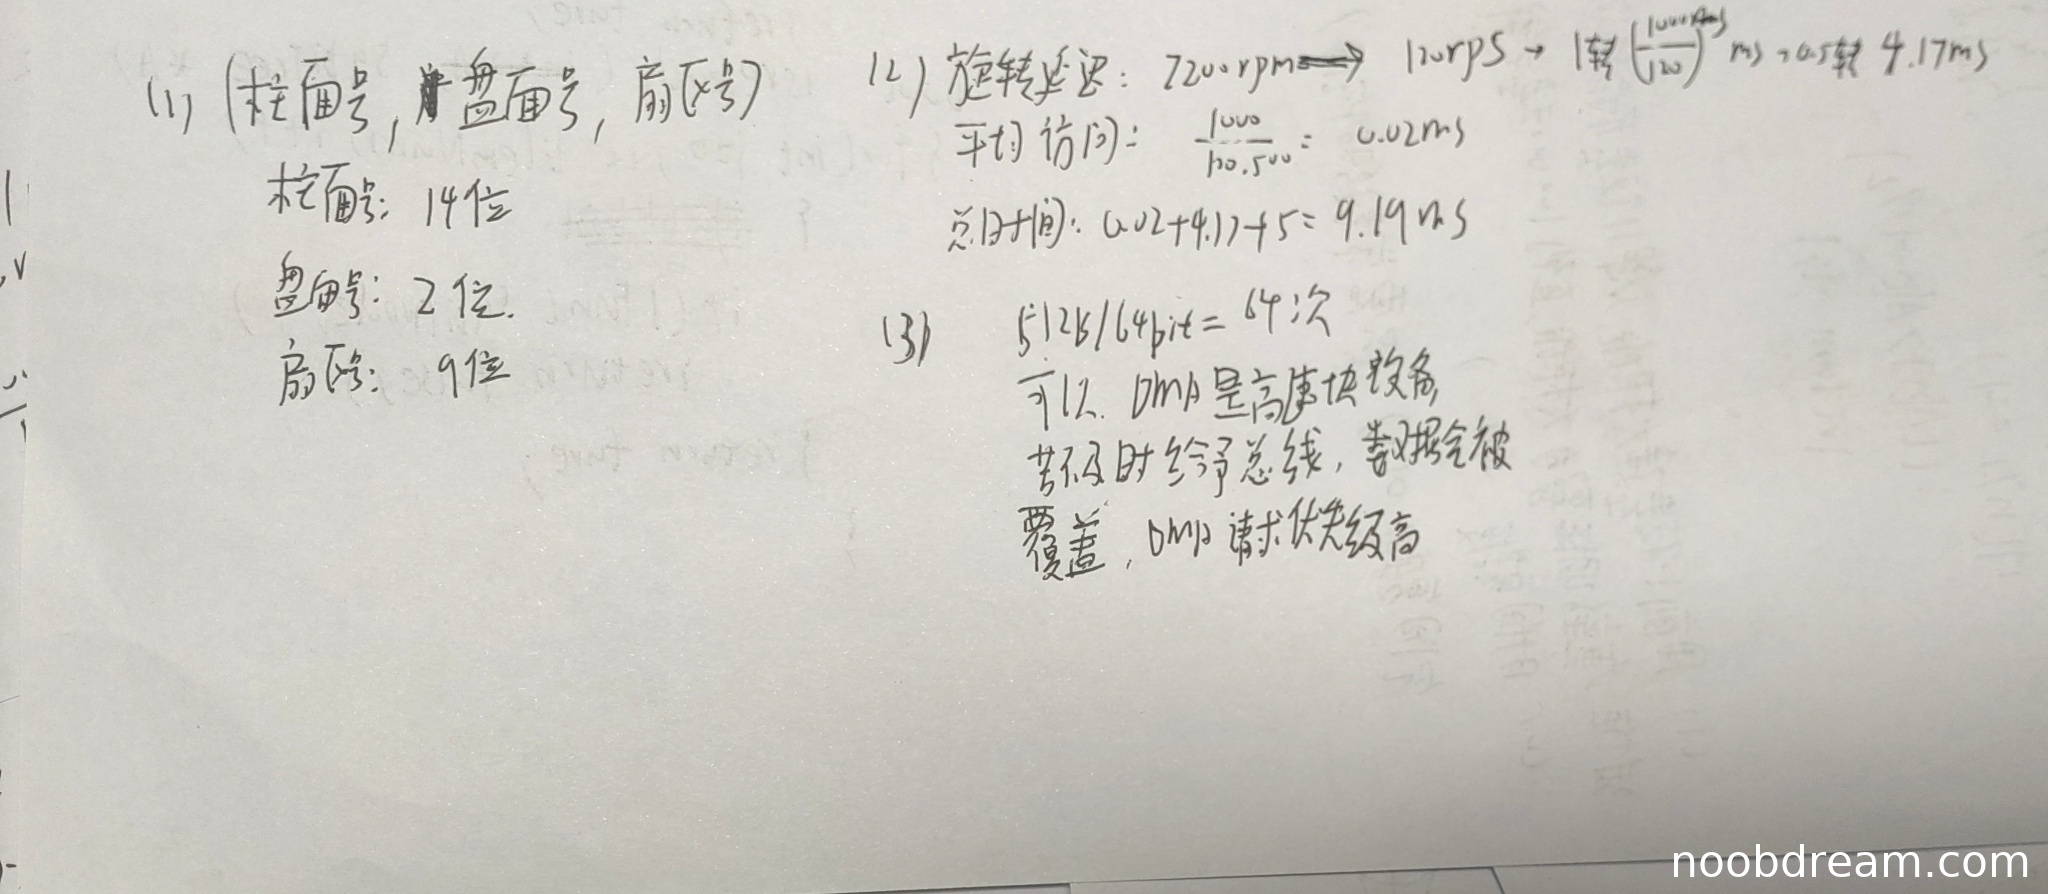 (1) (柱面号, 盘面号, 扇区号)
柱面号: 14位
盘面号: 2位.
扇区号: 9位
(2) 旋转延迟: 7200rpm → 120rps → 1转 (1000/120) ms → 0.5转 4.17ms
平均访问: 1000/120.500 = 0.02ms
总时间: 0.02+4.17+5= 9.19ms
(3) 512B/64bit = 64次
可以. DMA是高速块设备,
若不及时给予总线, 数据会被
覆盖, DMA请求优先级高
noobdream.com